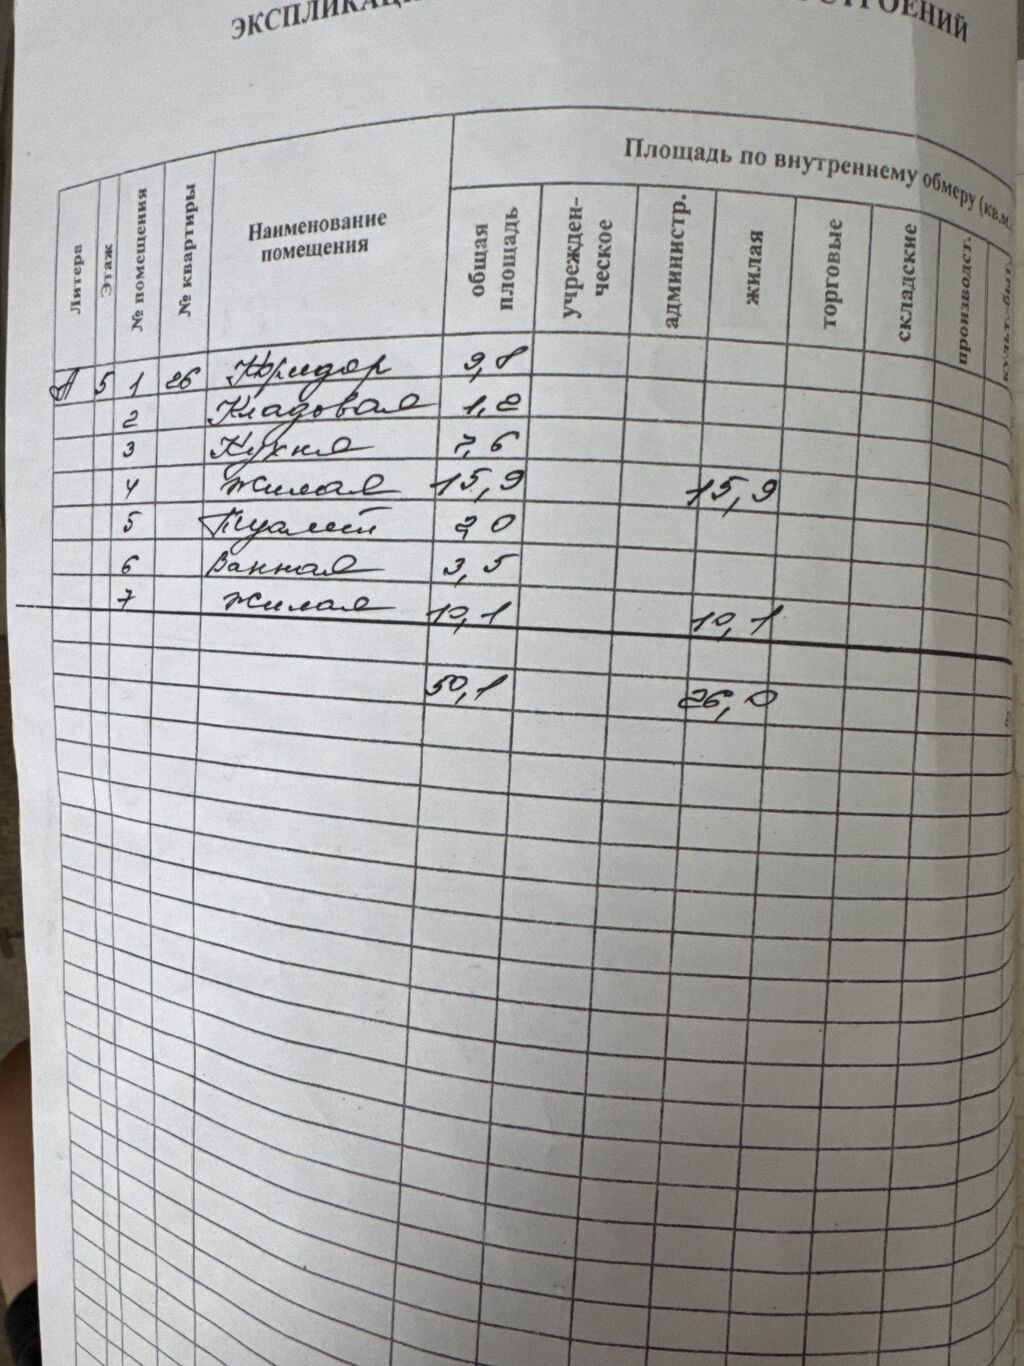 СТРОЕНИЙ
Площадь по внутреннему обмеру (кв.м.
Литера Этаж № помещения № квартиры Наименование помещения общая площадь учрежден-ческое администр. жилая торговые складские производст. культ.-быт.
А 5 1 26 Коридор 9,8
2 Кладовая 1,2
3 Кухня 7,6
4 Жилая 15,9 15,9
5 Туалет 2,0
6 Ванная 3,5
7 Жилая 10,1 10,1
50,1 26,0